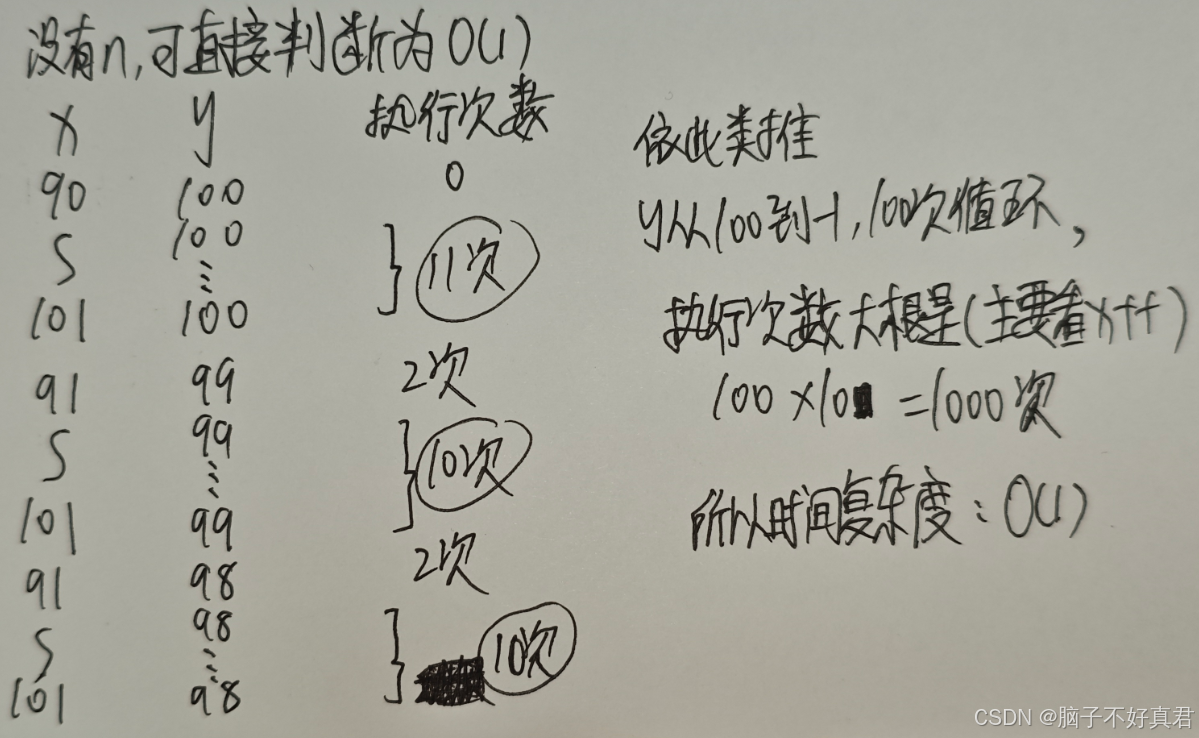 没有n,可直接判断为O(1)
x y 执行次数
90 100 0
S 100
⋮ } 11次
101 100
91 99 2次
S 99
⋮ } 10次
101 99
91 98 2次
S 98
⋮ } 10次
101 98
依此类推
y从100到-1,100次循环,
执行次数大概是(主要看x++)
100×10=1000次
所以时间复杂度:O(1)
CSDN @脑子不好真君